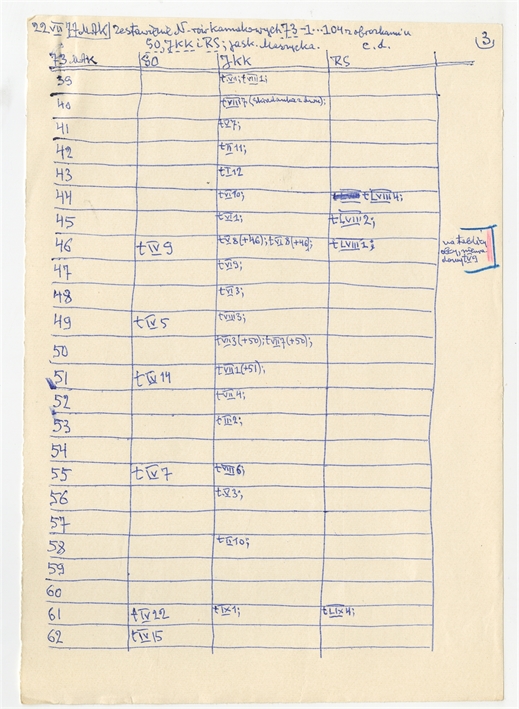 22.VII 77 MAK zestawienie N-rów kamakowych 73-1...104 z obrazkami u
SO, JKK i RS; jask. Maszycka. c.d. 3.
73. MAK SO JKK RS
39 tVII; tVIII1;
40 tVIII7
41 tX7;
42 tII11;
43 tI12
44 tVI10; tLVIII4;
45 tVI1; tLVIII2;
46 tIV9 tX8(+46); tVI8(+46); tLVIII1;
47 tVI9;
48 tVI3;
49 tIV5 tVIII3;
50 tVII3(+50); tVII7(+50);
51 tIV14 tVII1(+51);
52 tVII4;
53 tIII2;
54
55 tIV7 tVIII6;
56 tX3;
57
58 tII10;
59
60
61 tIV22 tIX1; tLIX4;
62 tIV15